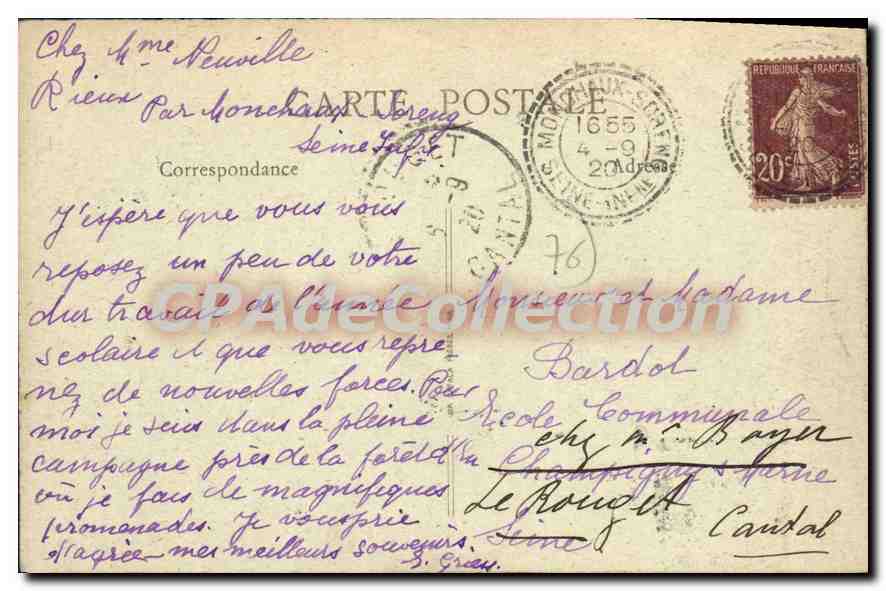 Chez Mme Neuville
Rieux
Par Monchaux Soreng
Seine Infre
CARTE POSTALE
Correspondance
Adresse
MONCHAUX-SORENG
16 55
4 - 9
20
SEINE-INFRE
REPUBLIQUE FRANÇAISE
20c
POSTES
5 - 9
20
CANTAL
76
J'espère que vous vous
reposez un peu de votre
dur travail de l'année
scolaire et que vous repre
nez de nouvelles forces. Pour
moi je suis dans la pleine
campagne près de la forêt d'Eu
où je fais de magnifiques
promenades. Je vous prie
d'agréer mes meilleurs souvenirs
Monsieur et Madame
Bardol
Ecole Communale
chez Mr Boyer
Champigny s Marne
Le Rouget
Seine
Cantal
CPAdeCollection